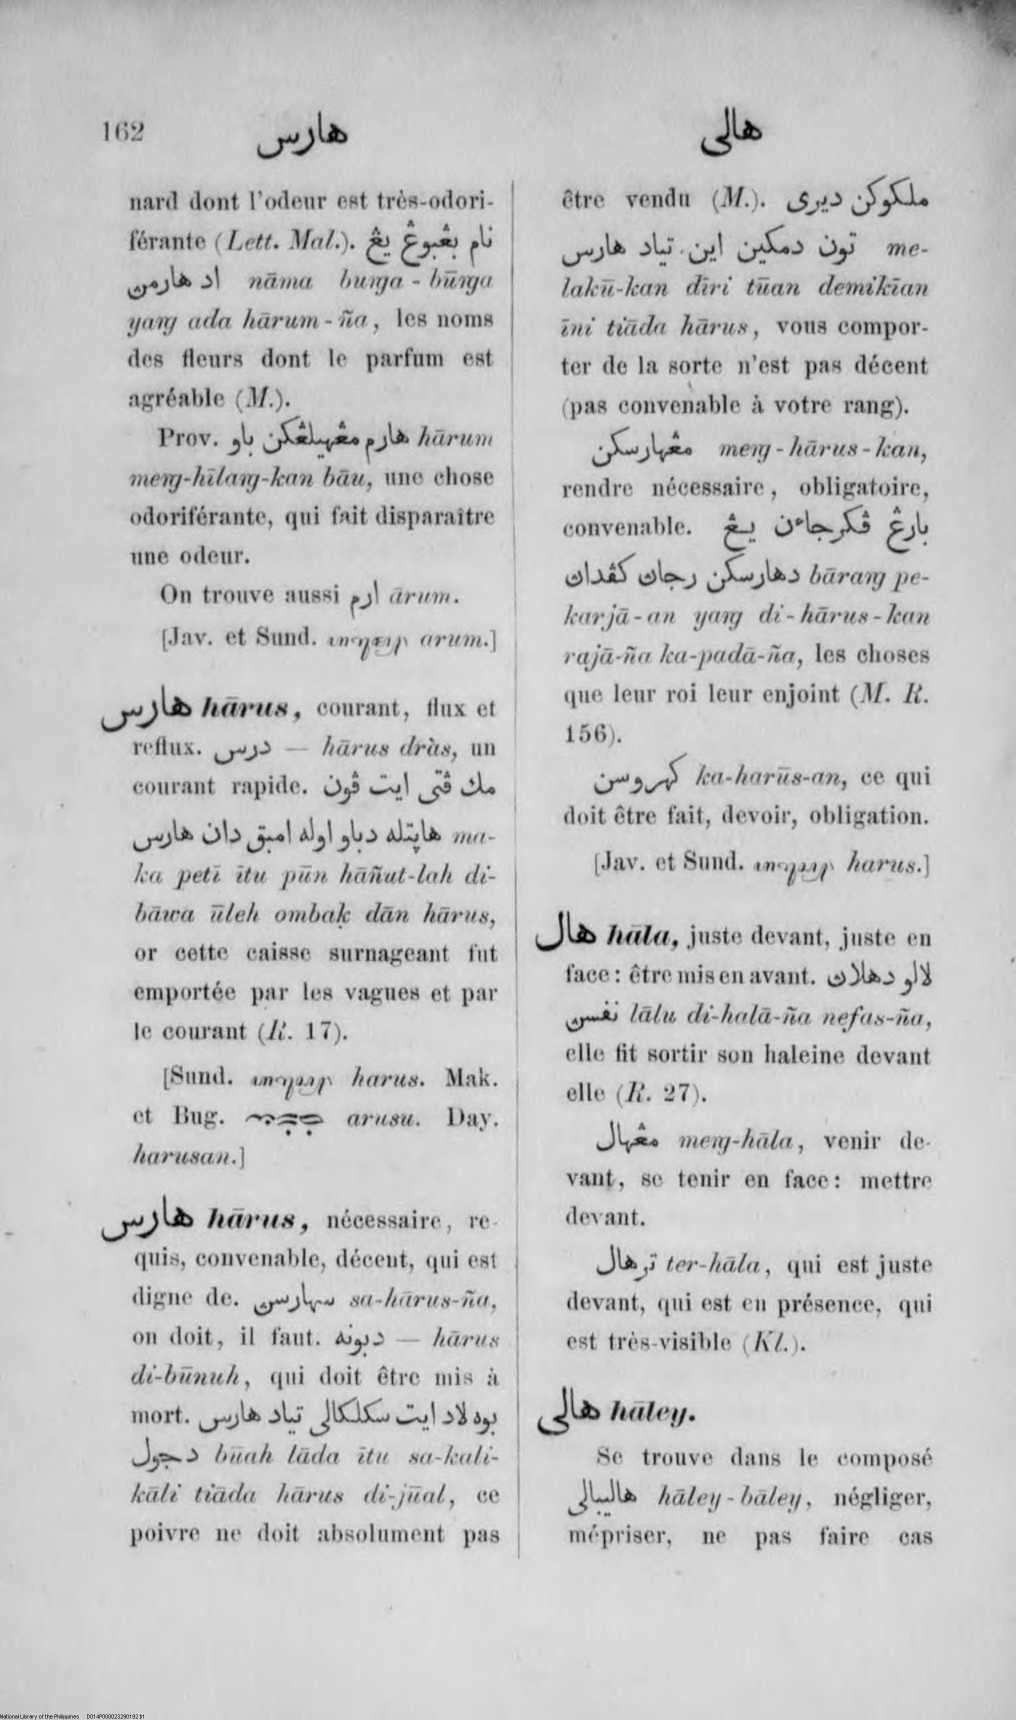 162
هارس
هالى
nard dont l'odeur est très-odori-
férante (Lett. Mal.). نام بڠبوڠ يڠ
اد هارمن nāma buṅga - būṅga
yaṅg ada hārum - ña, les noms
des fleurs dont le parfum est
agréable (M.).
Prov. هارم مڠهيلڠكن باو hārum
meṅg-hīlaṅg-kan bāu, une chose
odoriférante, qui fait disparaître
une odeur.
On trouve aussi ارم ārum.
[Jav. et Sund. arum.]
هارس hārus, courant, flux et
reflux. درس — hārus dràs, un
courant rapide. مك ڤتى ايت ڤون
هاپتله دباو اوله امبق دان هارس ma-
ka petī ītu pūn hāñut-lah di-
bāwa ūleh ombaḳ dān hārus,
or cette caisse surnageant fut
emportée par les vagues et par
le courant (R. 17).
[Sund. harus. Mak.
et Bug. arusu. Day.
harusan.]
هارس hārus, nécessaire, re-
quis, convenable, décent, qui est
digne de. سهارسن sa-hārus-ña,
on doit, il faut. دبونه — hārus
di-būnuh, qui doit être mis à
mort. بوه لاد ايت سكلكالى تياد هارس
دجول būah lāda ītu sa-kali-
kāli tiāda hārus di-jūal, ce
poivre ne doit absolument pas
être vendu (M.). ملكوكن ديرى
تون دمكين اين تياد هارس me-
lakū-kan dīri tūan demikīan
īni tiāda hārus, vous compor-
ter de la sorte n'est pas décent
(pas convenable à votre rang).
مڠهارسكن meṅg - hārus - kan,
rendre nécessaire, obligatoire,
convenable. بارڠ ڤكرجاءن يڠ
دهارسكن رجان كڤدان bāraṅg pe-
karjā - an yaṅg di - hārus - kan
rajā-ña ka-padā-ña, les choses
que leur roi leur enjoint (M. R.
156).
كهروسن ka-harūs-an, ce qui
doit être fait, devoir, obligation.
[Jav. et Sund. harus.]
هال hāla, juste devant, juste en
face: être mis en avant. لالو دهلان
نفسن lālu di-halā-ña nefas-ña,
elle fit sortir son haleine devant
elle (R. 27).
مڠهال meṅg-hāla, venir de-
vant, se tenir en face: mettre
devant.
ترهال ter-hāla, qui est juste
devant, qui est en présence, qui
est très-visible (Kl.).
هالى hāley.
Se trouve dans le composé
هاليبالى hāley - bāley, négliger,
mépriser, ne pas faire cas
National Library of the Philippines